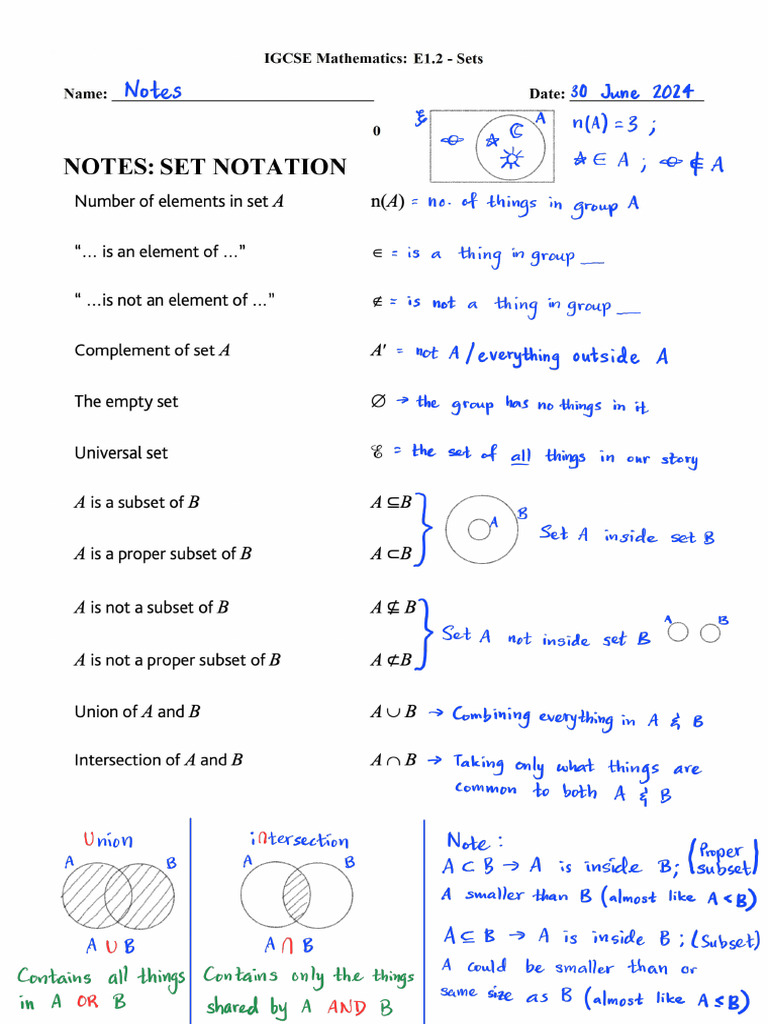 IGCSE Mathematics: E1.2 - Sets
Name: Notes Date: 30 June 2024
0
ℰ A n(A) = 3 ;
☆ ∈ A ; 🪐 ∉ A
NOTES: SET NOTATION
Number of elements in set A n(A) = no. of things in group A
“… is an element of …” ∈ = is a thing in group __
“ …is not an element of …” ∉ = is not a thing in group __
Complement of set A A′ = not A / everything outside A
The empty set ∅ → the group has no things in it
Universal set ℰ = the set of all things in our story
A is a subset of B A ⊆ B
A B Set A inside set B
A is a proper subset of B A ⊂ B
A is not a subset of B A ⊈ B
Set A not inside set B A B
A is not a proper subset of B A ⊄ B
Union of A and B A ∪ B → Combining everything in A & B
Intersection of A and B A ∩ B → Taking only what things are
common to both A & B
Union
A B
A ∪ B
Contains all things
in A OR B
i∩tersection
A B
A ∩ B
Contains only the things
shared by A AND B
Note :
A ⊂ B → A is inside B; (Proper
subset)
A smaller than B (almost like A < B)
A ⊆ B → A is inside B ; (Subset)
A could be smaller than or
same size as B (almost like A ≤ B)